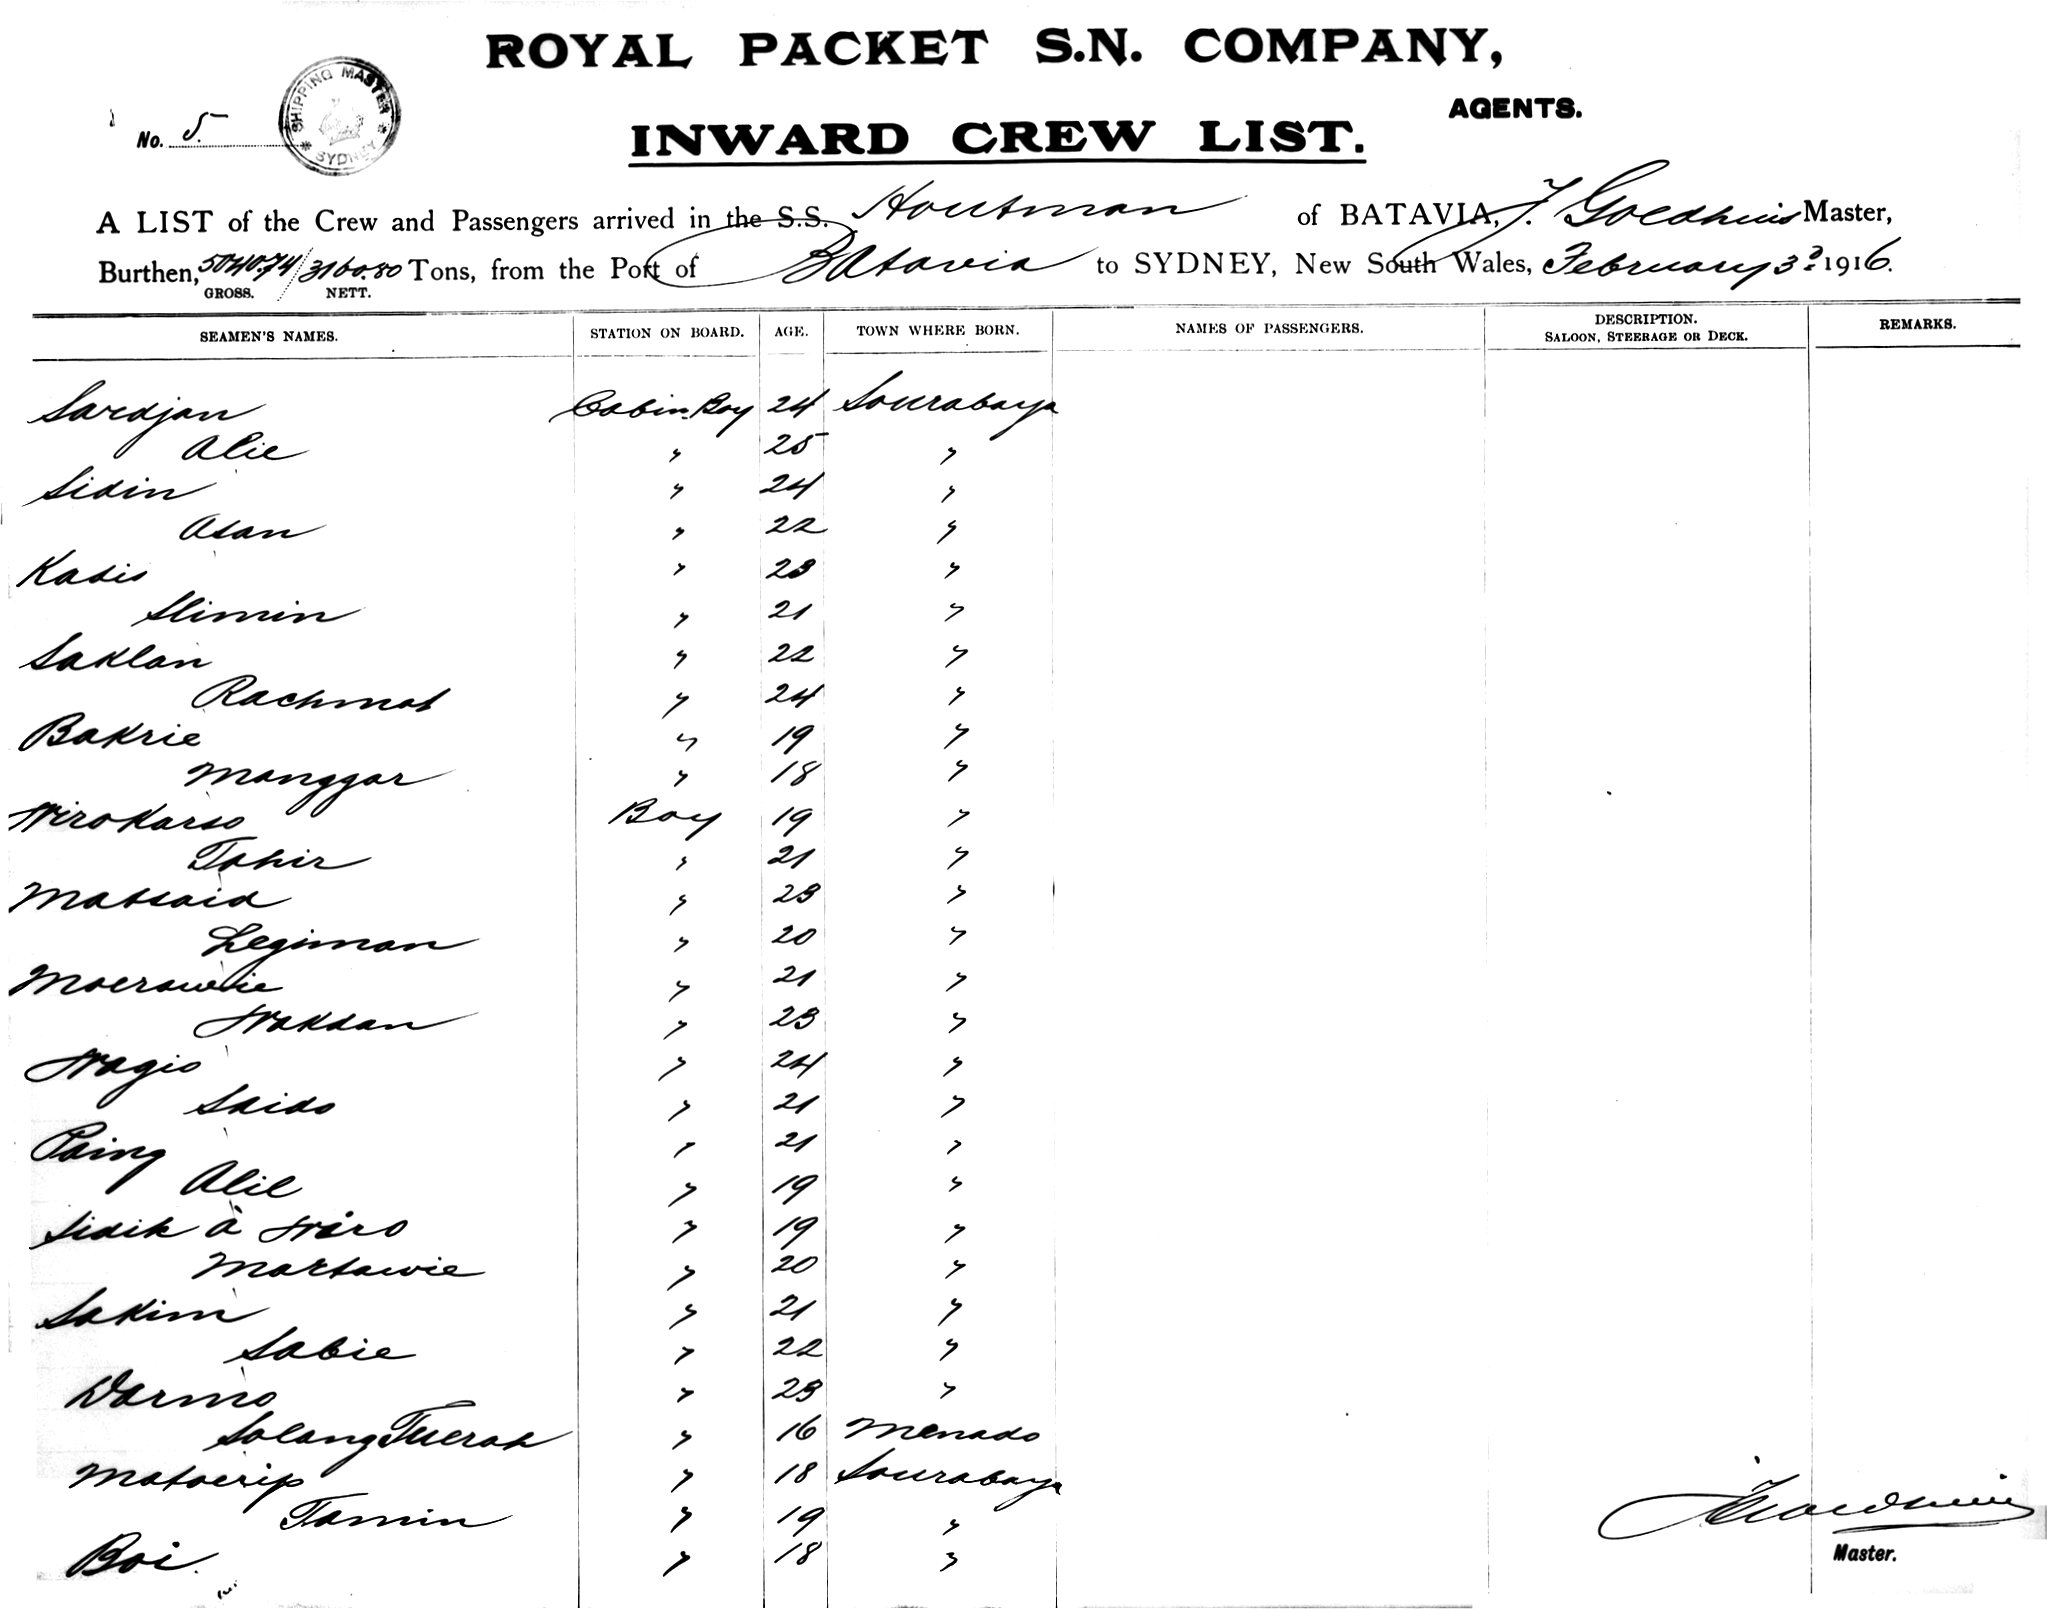 ROYAL PACKET S.N. COMPANY,
AGENTS.
No. 5.
SHIPPING MASTER * SYDNEY *
INWARD CREW LIST.
A LIST of the Crew and Passengers arrived in the S.S. Houtman of BATAVIA, J. Goedhuis Master,
Burthen, 5040.74/3160.80 Tons, from the Port of Batavia to SYDNEY, New South Wales, February 3 1916.
GROSS. NETT.
SEAMEN'S NAMES. STATION ON BOARD. AGE. TOWN WHERE BORN. NAMES OF PASSENGERS. DESCRIPTION. SALOON, STEERAGE OR DECK. REMARKS.
Sardjan Cabin Boy 24 Sourabaya
Alie " 25 "
Sidin " 24 "
Asan " 22 "
Kadis " 23 "
Slimin " 21 "
Saklan " 22 "
Rachmat " 24 "
Bakrie " 19 "
Manggar " 18 "
Wirokarso Boy 19 "
Tahir " 21 "
Matsaid " 23 "
Legiman " 20 "
Moerawie " 21 "
Wakdan " 23 "
Wagio " 24 "
Saido " 21 "
Paing " 21 "
Alil " 19 "
Sidik à Wiro " 19 "
Martawie " 20 "
Sakim " 21 "
Sabie " 22 "
Darmo " 23 "
Solang Tuerah " 16 Menado
Matoerip " 18 Sourabaya
Tamin " 19 "
Boi. " 18 "
Goedhuis
Master.